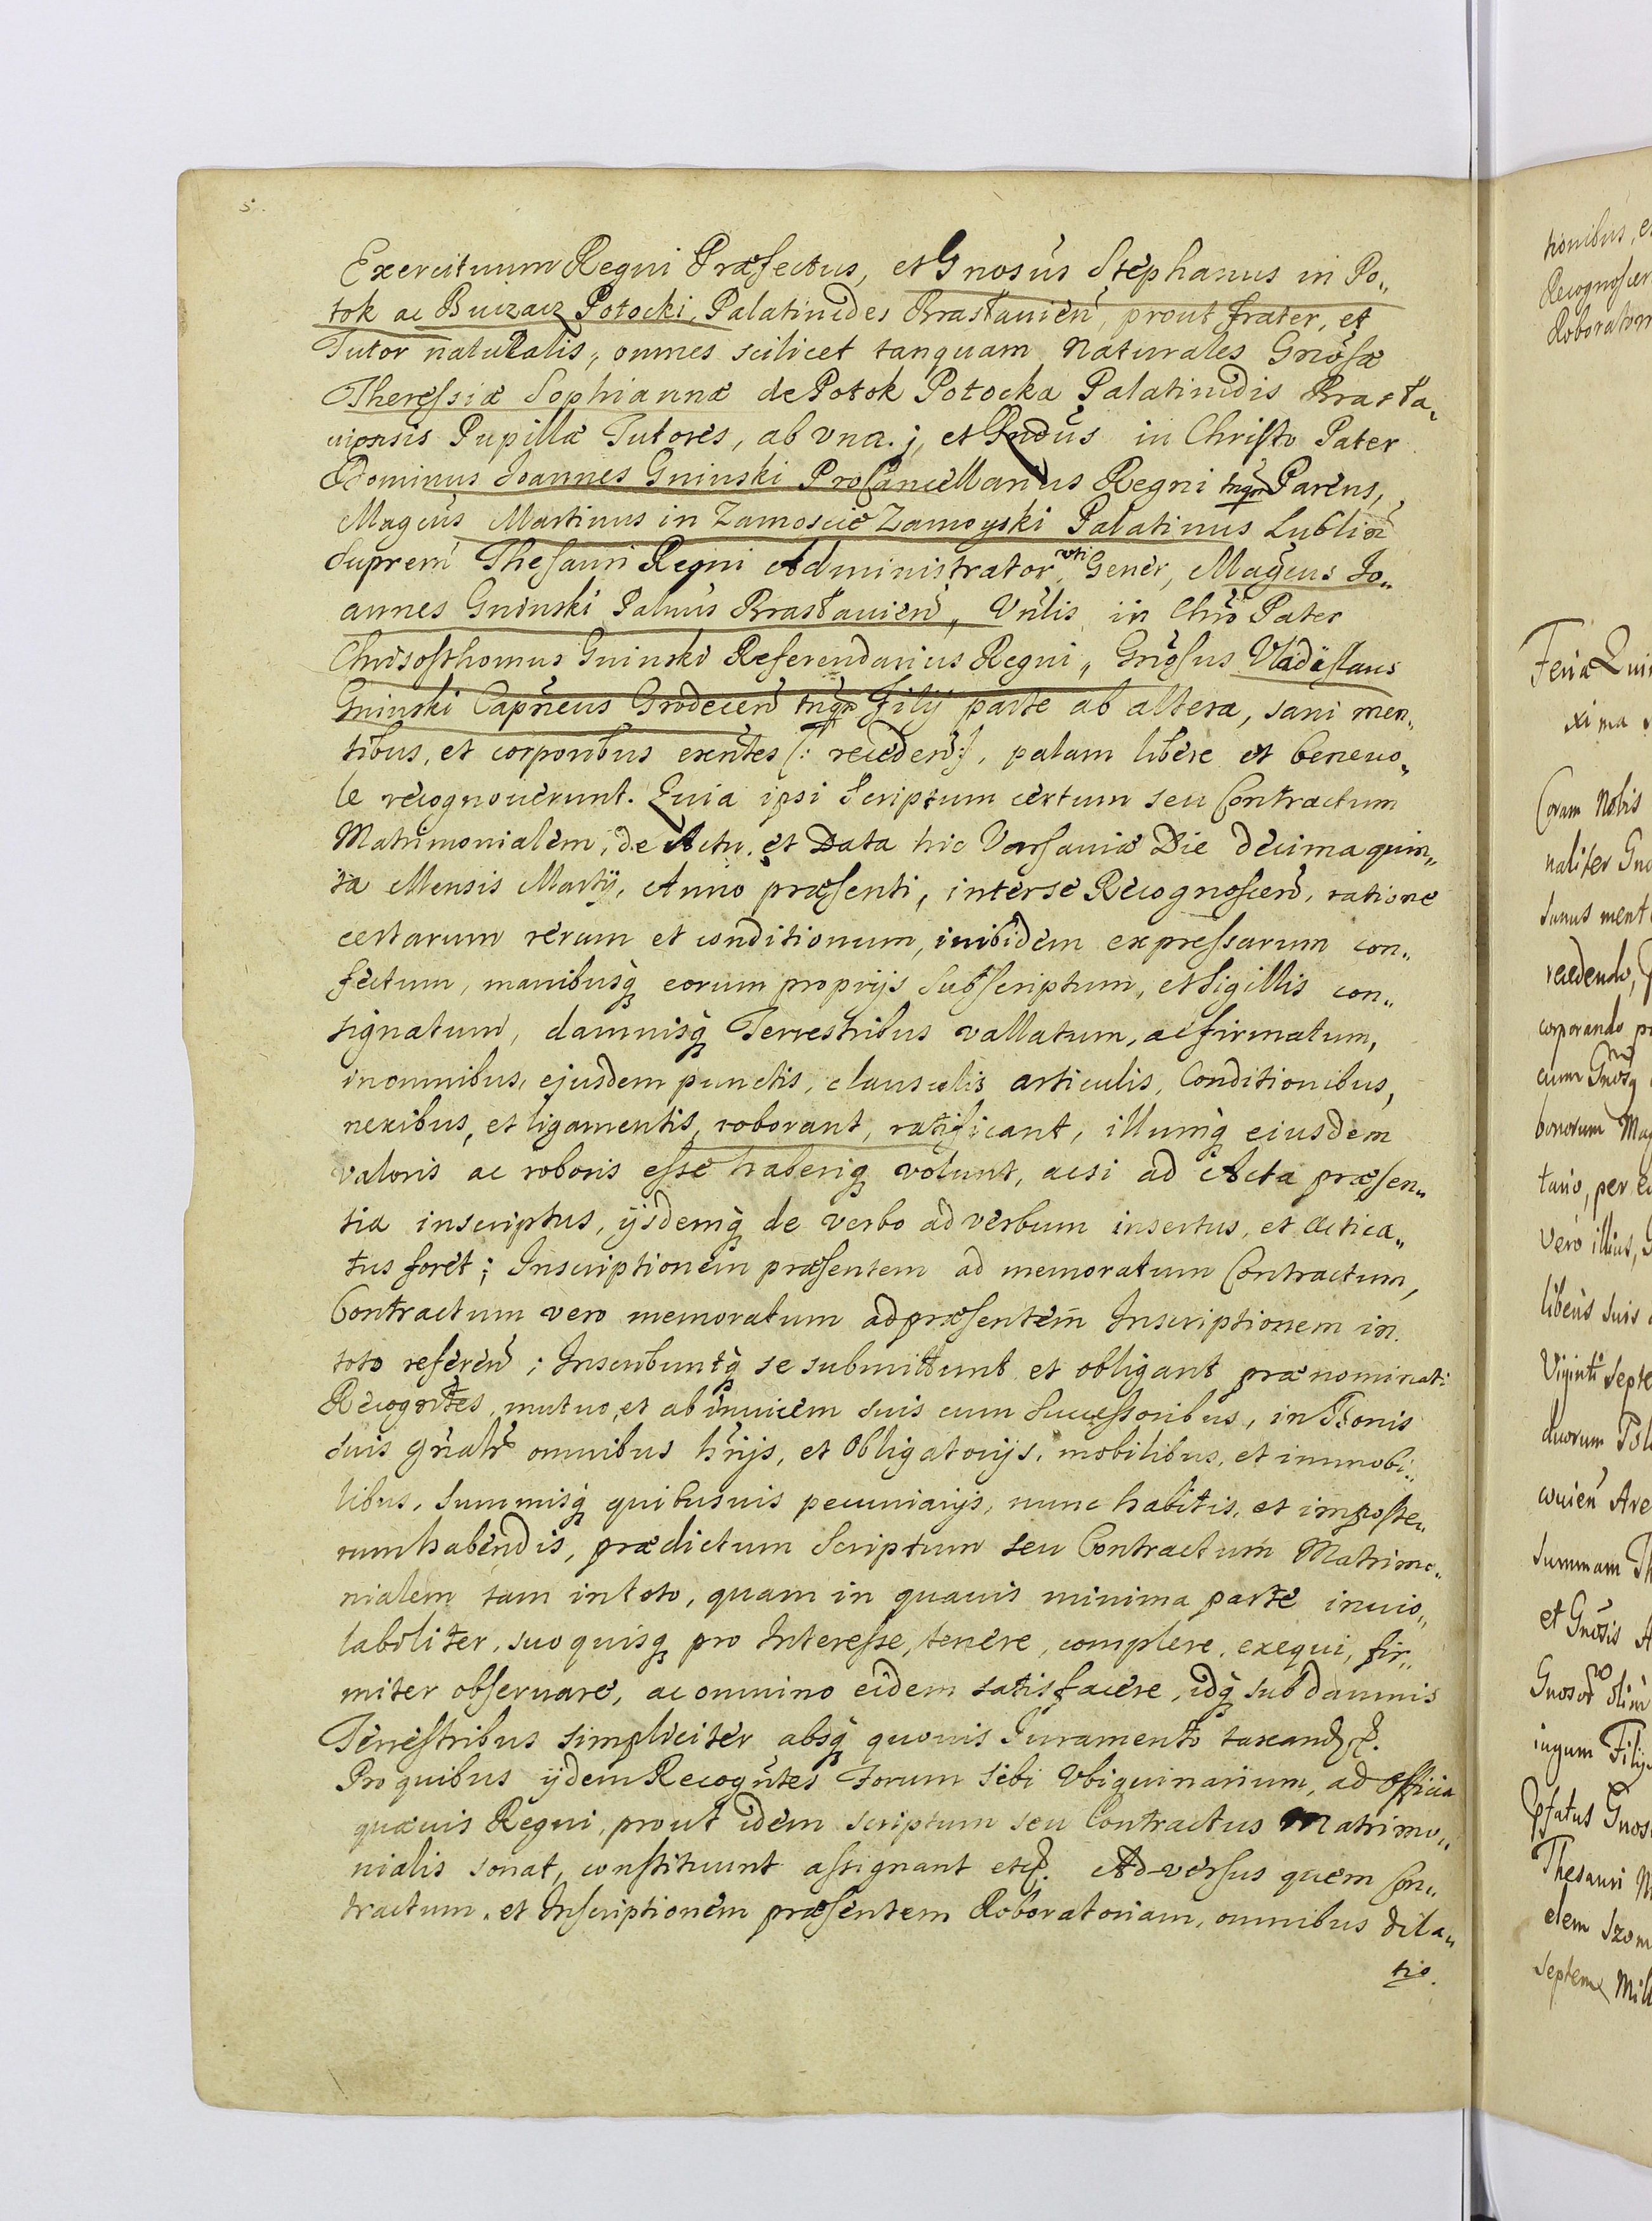 5.
Exercituum Regni Præfectus, et Gnosus Stephanus in Po„
tok ac Buczacz Potocki, Palatinides Brasłavień, prout frater, et
Tutor naturalis, omnes scilicet tanquam Naturales Gnosæ
Theressiæ Sophiannæ de Potok Potocka Palatinidis Brasła„
viensis Pupillæ Tutores, ab vna. j, et Rndus in Christo Pater
Dominus Joannes Gninski ProCancellarius Regni tnqm Parens,
Magcus Martinus in Zamoscie Zamoyski Palatinus Lublin
Supremi Thesauri Regni Administrator vti Gener, Magcus Jo„
annes Gninski Palnus Brasłavień, Vnlis in Chro Pater
Chrisosthomus Gninski Referendarius Regni, Gnosus Vladislaus
Gninski Capneus Grodeceń tnqm Filij parte ab altera, sani men„
tibus, et corporibus exntes (: receden :), palam libere et benevo„
le recognoverunt. Quia ipsi Scriptum certum seu Contractum
Matrimonialem, de Actu. et Data hic Varsaviæ Die decima quin„
ta Mensis Martij, Anno præsenti, inter se Recognoscen, ratione
certarum rerum et conditionum, inibidem expressarum con„
fectum, manibusq eorum proprijs Subscriptum, et Sigillis con„
signatum, damnisq Terrestribus vallatum, ac firmatum,
in omnibus, ejusdem punctis, clausulis articulis, Conditionibus,
nexibus, et ligamentis, roborant, ratificant, illumq eiusdem
valoris ac roboris esse haberiq volunt, acsi ad Acta præsen„
tia inscriptus, ijsdemq de verbo ad verbum insertus, et actica„
tus foret; Inscriptionem præsentem ad memoratum Contractum,
Contractum vero memoratum ad præsentem Inscriptionem in
toto referen; Inscribuntq se submittunt et obligant prænominati
Recogntes, mutuo, et ab invicem suis cum Successoribus, in Bonis
suis gnalr omnibus hrijs, et Obligatorijs, mobilibus, et immobi„
libus, Summisq quibusvis pecuniarijs, nunc habitis, et imposte„
rum habendis, prædictum Scriptum seu Contractum Matrimo„
nialem tam in toto, quam in quavis minima parte invio„
labiliter, suo quisq pro Interesse, tenere, complere, exequi, fir„
miter observare, ac omnino eidem satisfacere, idq sub damnis
Terrestribus simpliciter absq quovis Juramento taxand.
Pro quibus ijdem Recogntes Forum sibi Vbiquinarium, ad Officia
quævis Regni, prout idem scriptum seu Contractus Matrimo„
nialis sonat, constituunt assignant etc. Adversus quem Con„
tractum, et Inscriptionem præsentem Roboratoriam, omnibus dila„
tio.
tionibus, e
Recognoscen
Roborator
Feria Quin
xima
Coram Nobis
naliter Gno
Sanus ment
recedendo,
corporando pr
cum Gnosq
bonorum Mag
tario, per e
Vero illius,
liberis suis
Viginti Septe
duorum Pol
Are
Summam Th
et Gnosis A
Gnosor olim
iugum Filij
Pfatus Gnos
Thesauri M
dem Szom
Septem Mill